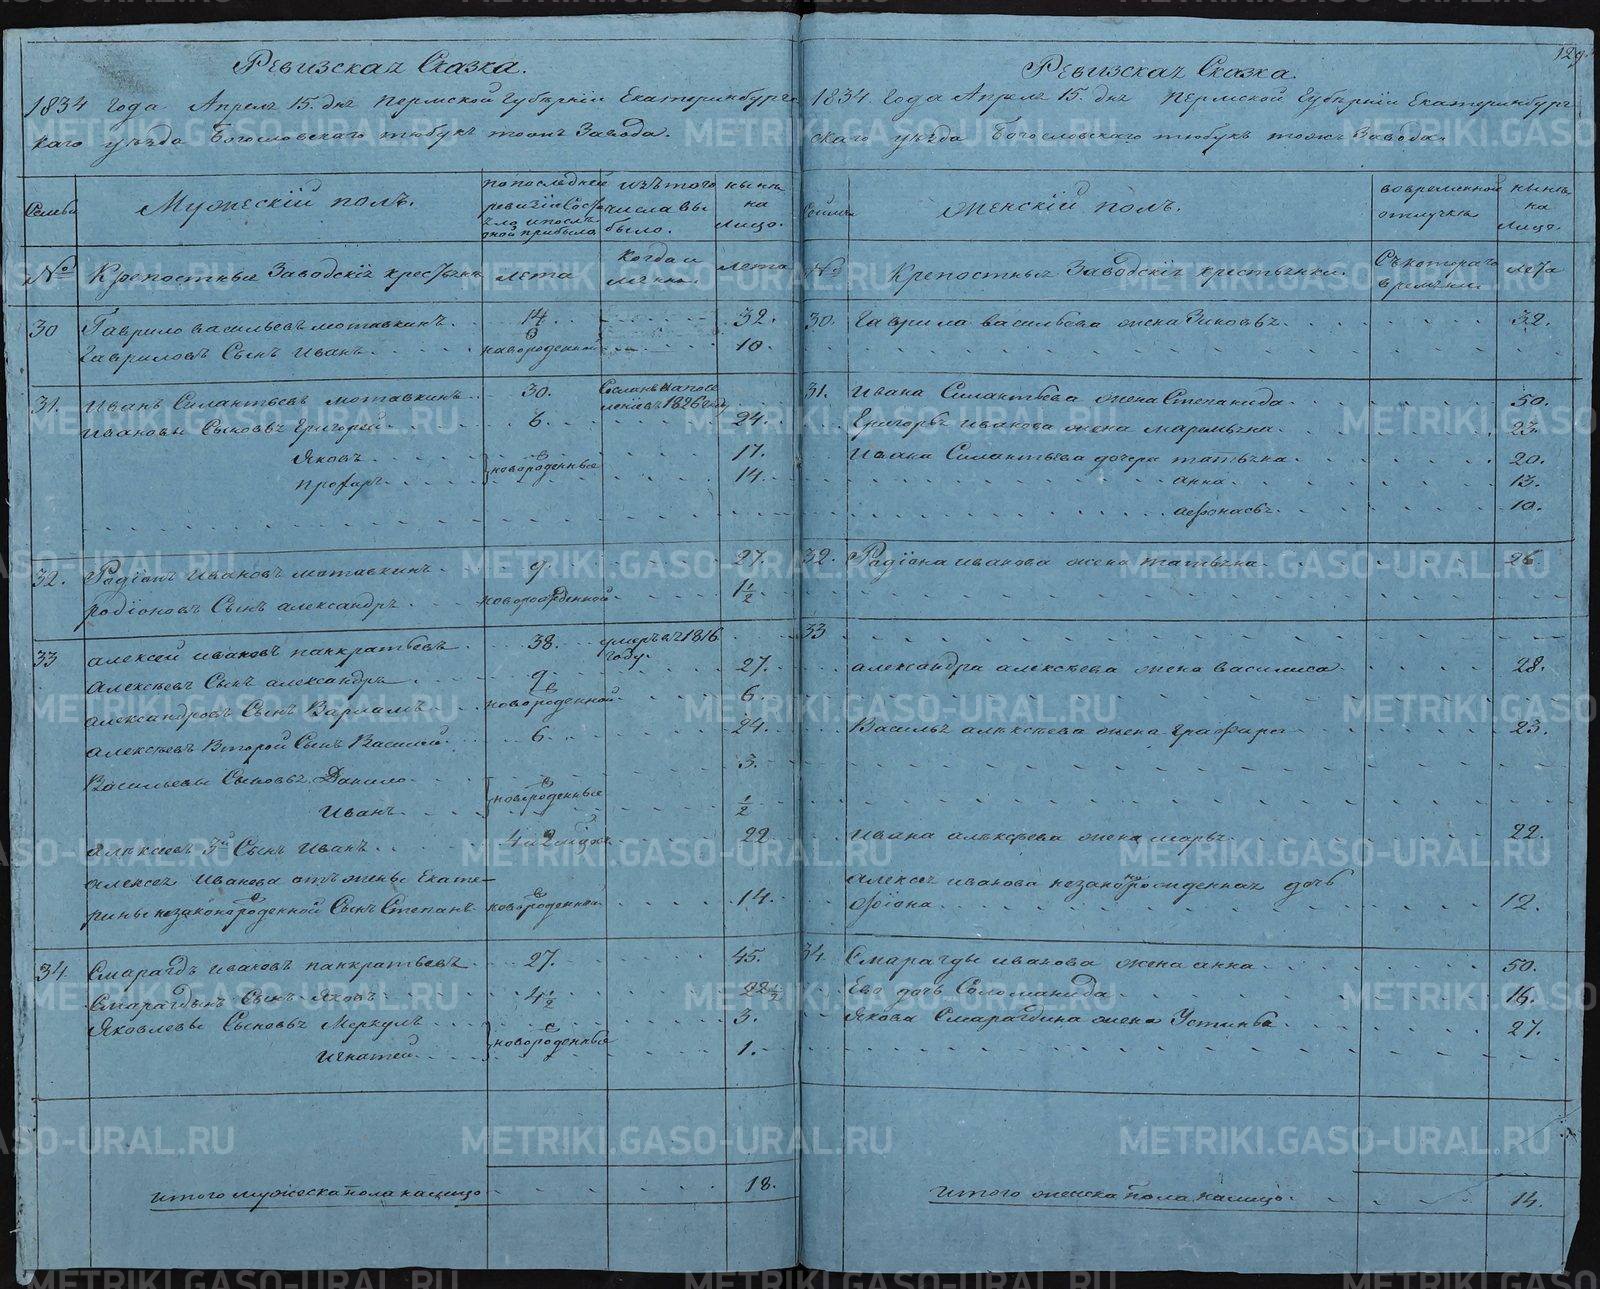 129.
Ревизская Сказка.
1834 года Апреля 15. дня Пермской Губернiи Екатеринбург
скаго уезда Богословскаго тюбукъ тожъ Завода.
Семьи
Мужескiй полъ.
по последней
ревизiи Состо
яло и после
оной прибыло
изъ того
числа вы
было.
ныне
на
лицо.
№
Крепостныя Заводскiя крестьяне
лета
Когда и
лета
30
Гаврило васильевъ мотавкинъ
14
32.
Гавриловъ Сынъ Иванъ
новорожденной
10.
31.
Иванъ Силантьевъ мотавкинъ
30.
Сосланъ на посе
ленiе въ 1826 году
Ивановы Сыновья Григорей
6.
24.
Яковъ
новорожденные
17.
14.
32.
Родiонъ Ивановъ мотавкинъ
9.
27.
родiоновъ Сынъ александръ
новорожденной
1 1/2
33
алексей ивановъ панкратьевъ
38.
умеръ въ 1816
году.
Алексеевъ Сынъ александръ
9.
27.
александровъ Сынъ Варламъ
новорожденной
6.
алексеевъ Второй Сынъ Василий
6.
24.
Васильевы Сыновья Данило
новорожденные
3.
Иванъ
1/2
алексеевъ 3й Сынъ Иванъ
22
алексея Иванова отъ жены Екате-
рины незаконорожденной Сынъ Степанъ
новорожденной
14.
34
Смарагдъ ивановъ панкратьевъ
27.
45.
Смарагдовъ Сынъ Яковъ
4 1/2
22 1/2
Яковлевы Сыновья Меркулъ
новорожденные
3.
Игнатей
1.
итого мужеска пола налицо
18.
Ревизская Сказка.
1834. Года Апреля 15. дня Пермской Губернiи Екатеринбург
скаго уезда Богословскаго тюбукъ тожъ Завода.
Семьи
Женскiй полъ.
во временной
отлучке
ныне
на
лицо.
№
Крепостныя Заводскiя крестьянки.
Съ котораго
времени
лета
30.
Гаврила васильева жена Зиновья
32.
31.
Ивана Силантьева жена Степанида
50.
Григорья иванова жена маремьяна
23.
Ивана Силантьева дочери татьяна
20.
анна
13.
афонасья
10.
32.
Родiона иванова жена татьяна
26
33
александра алексеева жена василиса
28.
Василья алексеева жена Графира
23.
Ивана алексеева жена марья
22.
алексея иванова незаконорожденная дочь
12.
34.
Смарагды иванова жена анна
50.
Ево дочь Соломанида
16.
Якова Смарагдина жена Устинья
27.
итого женска пола налицо.
14.
METRIKI.GASO-URAL.RU